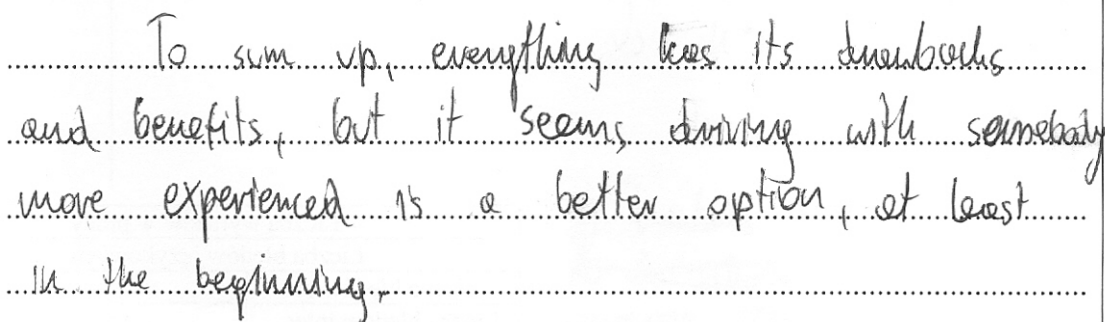 To sum up, everything has its drawbacks
and benefits, but it seems driving with somebody
more experienced is a better option, at least
in the beginning.